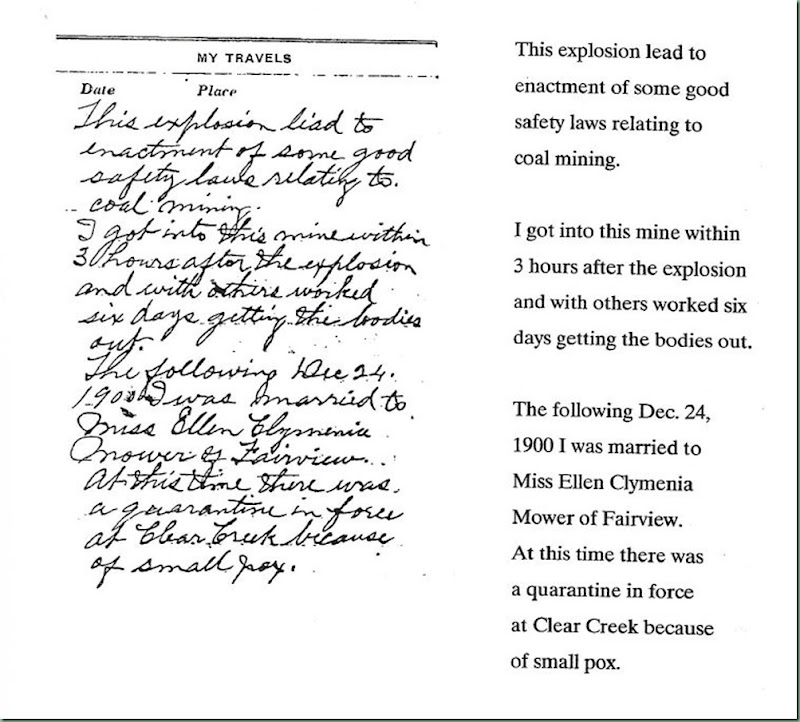 MY TRAVELS
Date Place
This explosion liad to
enactment of some good
safety laws relating to.
coal mining.
I got into this mine within
3 hours after the explosion
and with others worked
six days getting the bodies
out.
The following Dec 24.
1900 I was married to
Miss Ellen Clymenia
Mower of Fairview.
At this time there was
a quarantine in force
at Clear Creek because
of small pox.
This explosion lead to
enactment of some good
safety laws relating to
coal mining.
I got into this mine within
3 hours after the explosion
and with others worked six
days getting the bodies out.
The following Dec. 24,
1900 I was married to
Miss Ellen Clymenia
Mower of Fairview.
At this time there was
a quarantine in force
at Clear Creek because
of small pox.